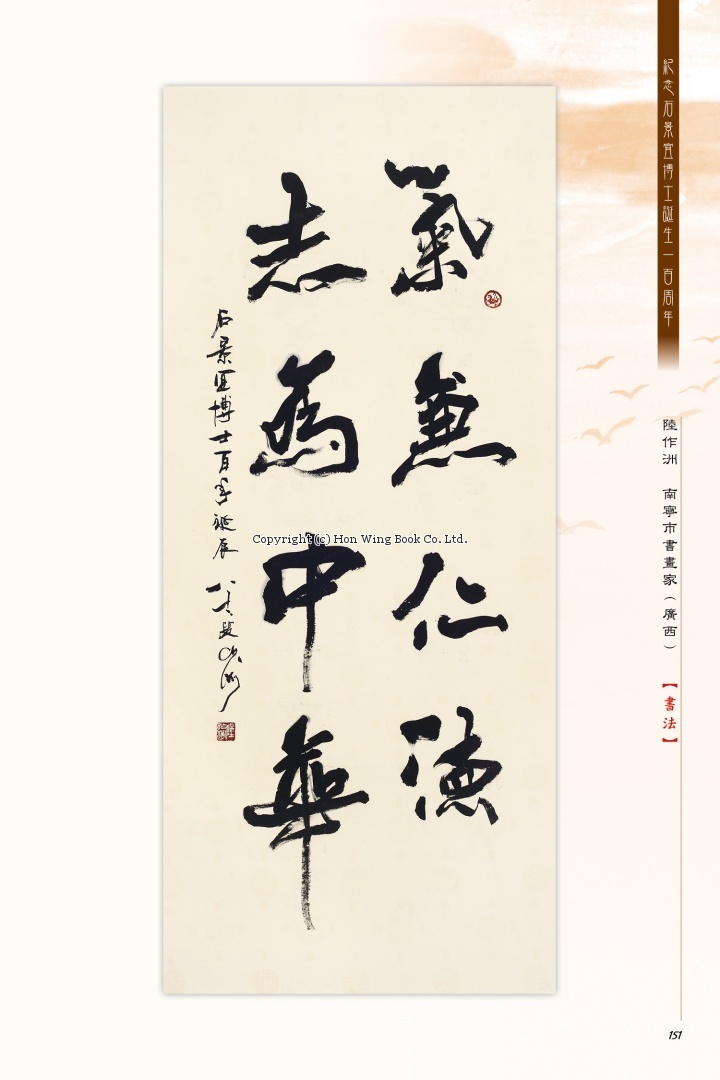 紀念石景宜博士誕生一百周年
陸作洲 南寧市書畫家（廣西）
【書法】
氣兼仁德
志為中華
石景宜博士百年誕辰
Copyright (c) Hon Wing Book Co. Ltd.
151